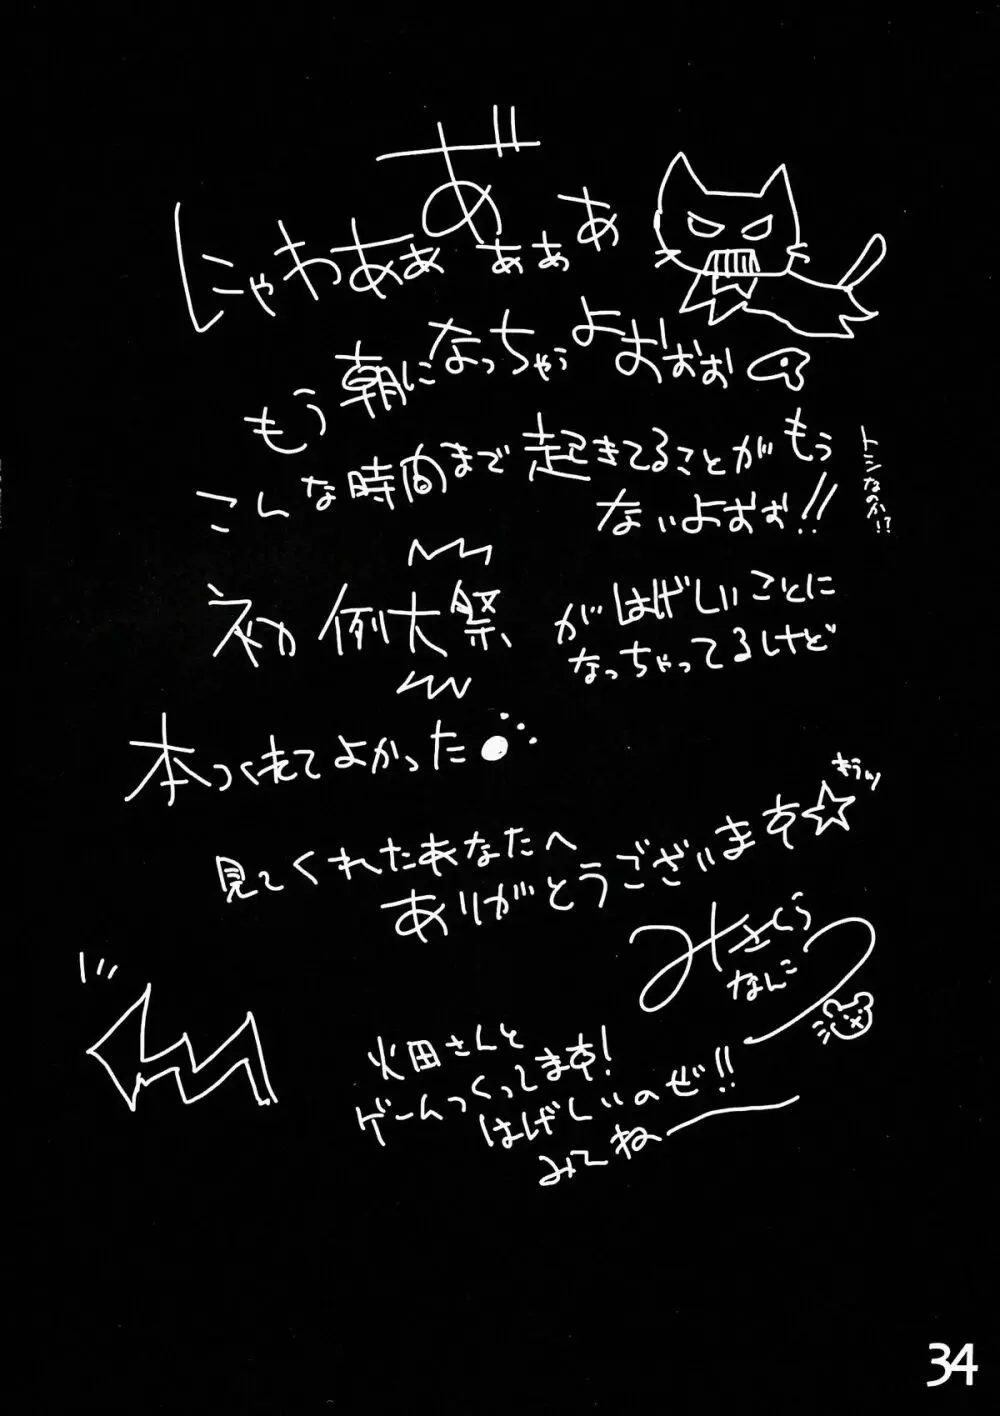 にゃわあぁあ゛ぁぁあ
もう朝になっちゃうよおぉぉ
こんな時間まで起きてることがもう
ないよぉぉ!!
トシなのか!?
初例大祭
がはげしいことに
なっちゃってるけど
本つくれてよかった
見てくれたあなたへ
ありがとうございます☆
きらっ
みさくら
なんこ
火田さんと
ゲームつくってます!
はげしいのぜ!!
みてねー
34